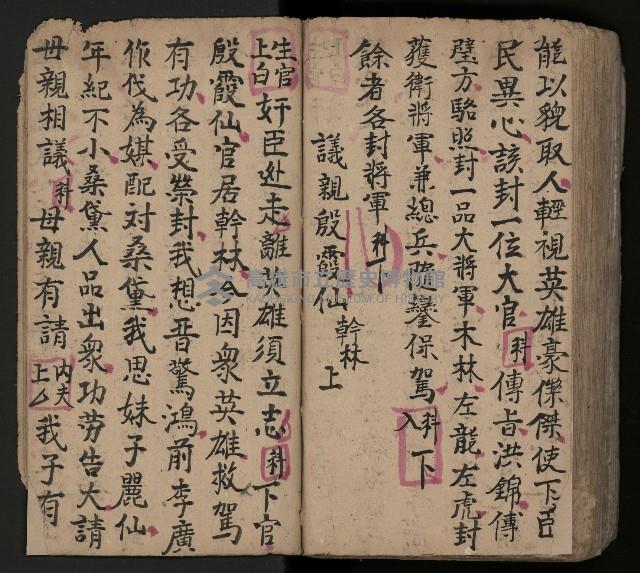 能以貌取人輕視英雄豪傑傑使下臣
民異心該封一位大官科傳旨洪錦傳
璧方駱照封一品大將軍木林左龍左虎封
䕶衛將軍兼總兵薩鑾保駕科下入
餘者各封將軍科下
議親殷霞仙幹林上
生官上白奸臣处走離 雄須立志科下官
殷霞仙官居幹林 因衆英雄救駕
有功各受榮封我想晋驚鴻前李廣
作伐為媒配对桑黛我思妹子麗仙
年紀不小桑黛人品出衆功劳告大請
母親相議科母親有請内夫上么我子有
高雄市立歷史博物館
KAOHSIUNG MUSEUM OF HISTORY